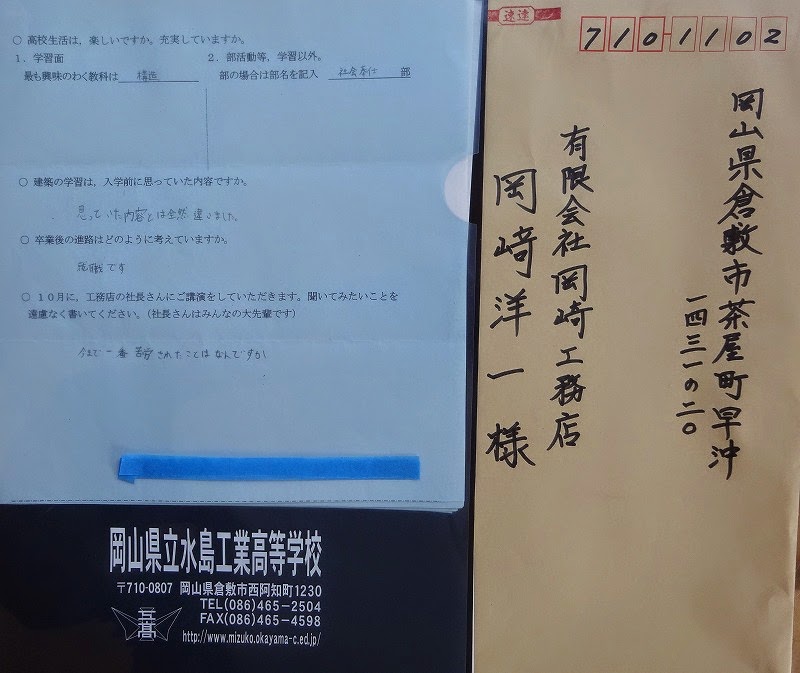 ○ 高校生活は、楽しいですか。充実していますか。
1．学習面
最も興味のわく教科は 構造
2．部活動等，学習以外。
部の場合は部名を記入 社会奉仕 部
○ 建築の学習は、入学前に思っていた内容ですか。
思っていた内容とは全然違いました。
○ 卒業後の進路はどのように考えていますか。
就職です
○ １０月に，工務店の社長さんにご講演をしていただきます。聞いてみたいことを
遠慮なく書いてください。（社長さんはみんなの大先輩です）
今まで一番苦労されたことはなんですか
岡山県立水島工業高等学校
〒710-0807 岡山県倉敷市西阿知町1230
TEL(086)465-2504
FAX(086)465-4598
http://www.mizuko.okayama-c.ed.jp/
速達
710-1102
岡山県倉敷市茶屋町早沖
一四三一の二〇
有限会社岡崎工務店
岡﨑洋一様